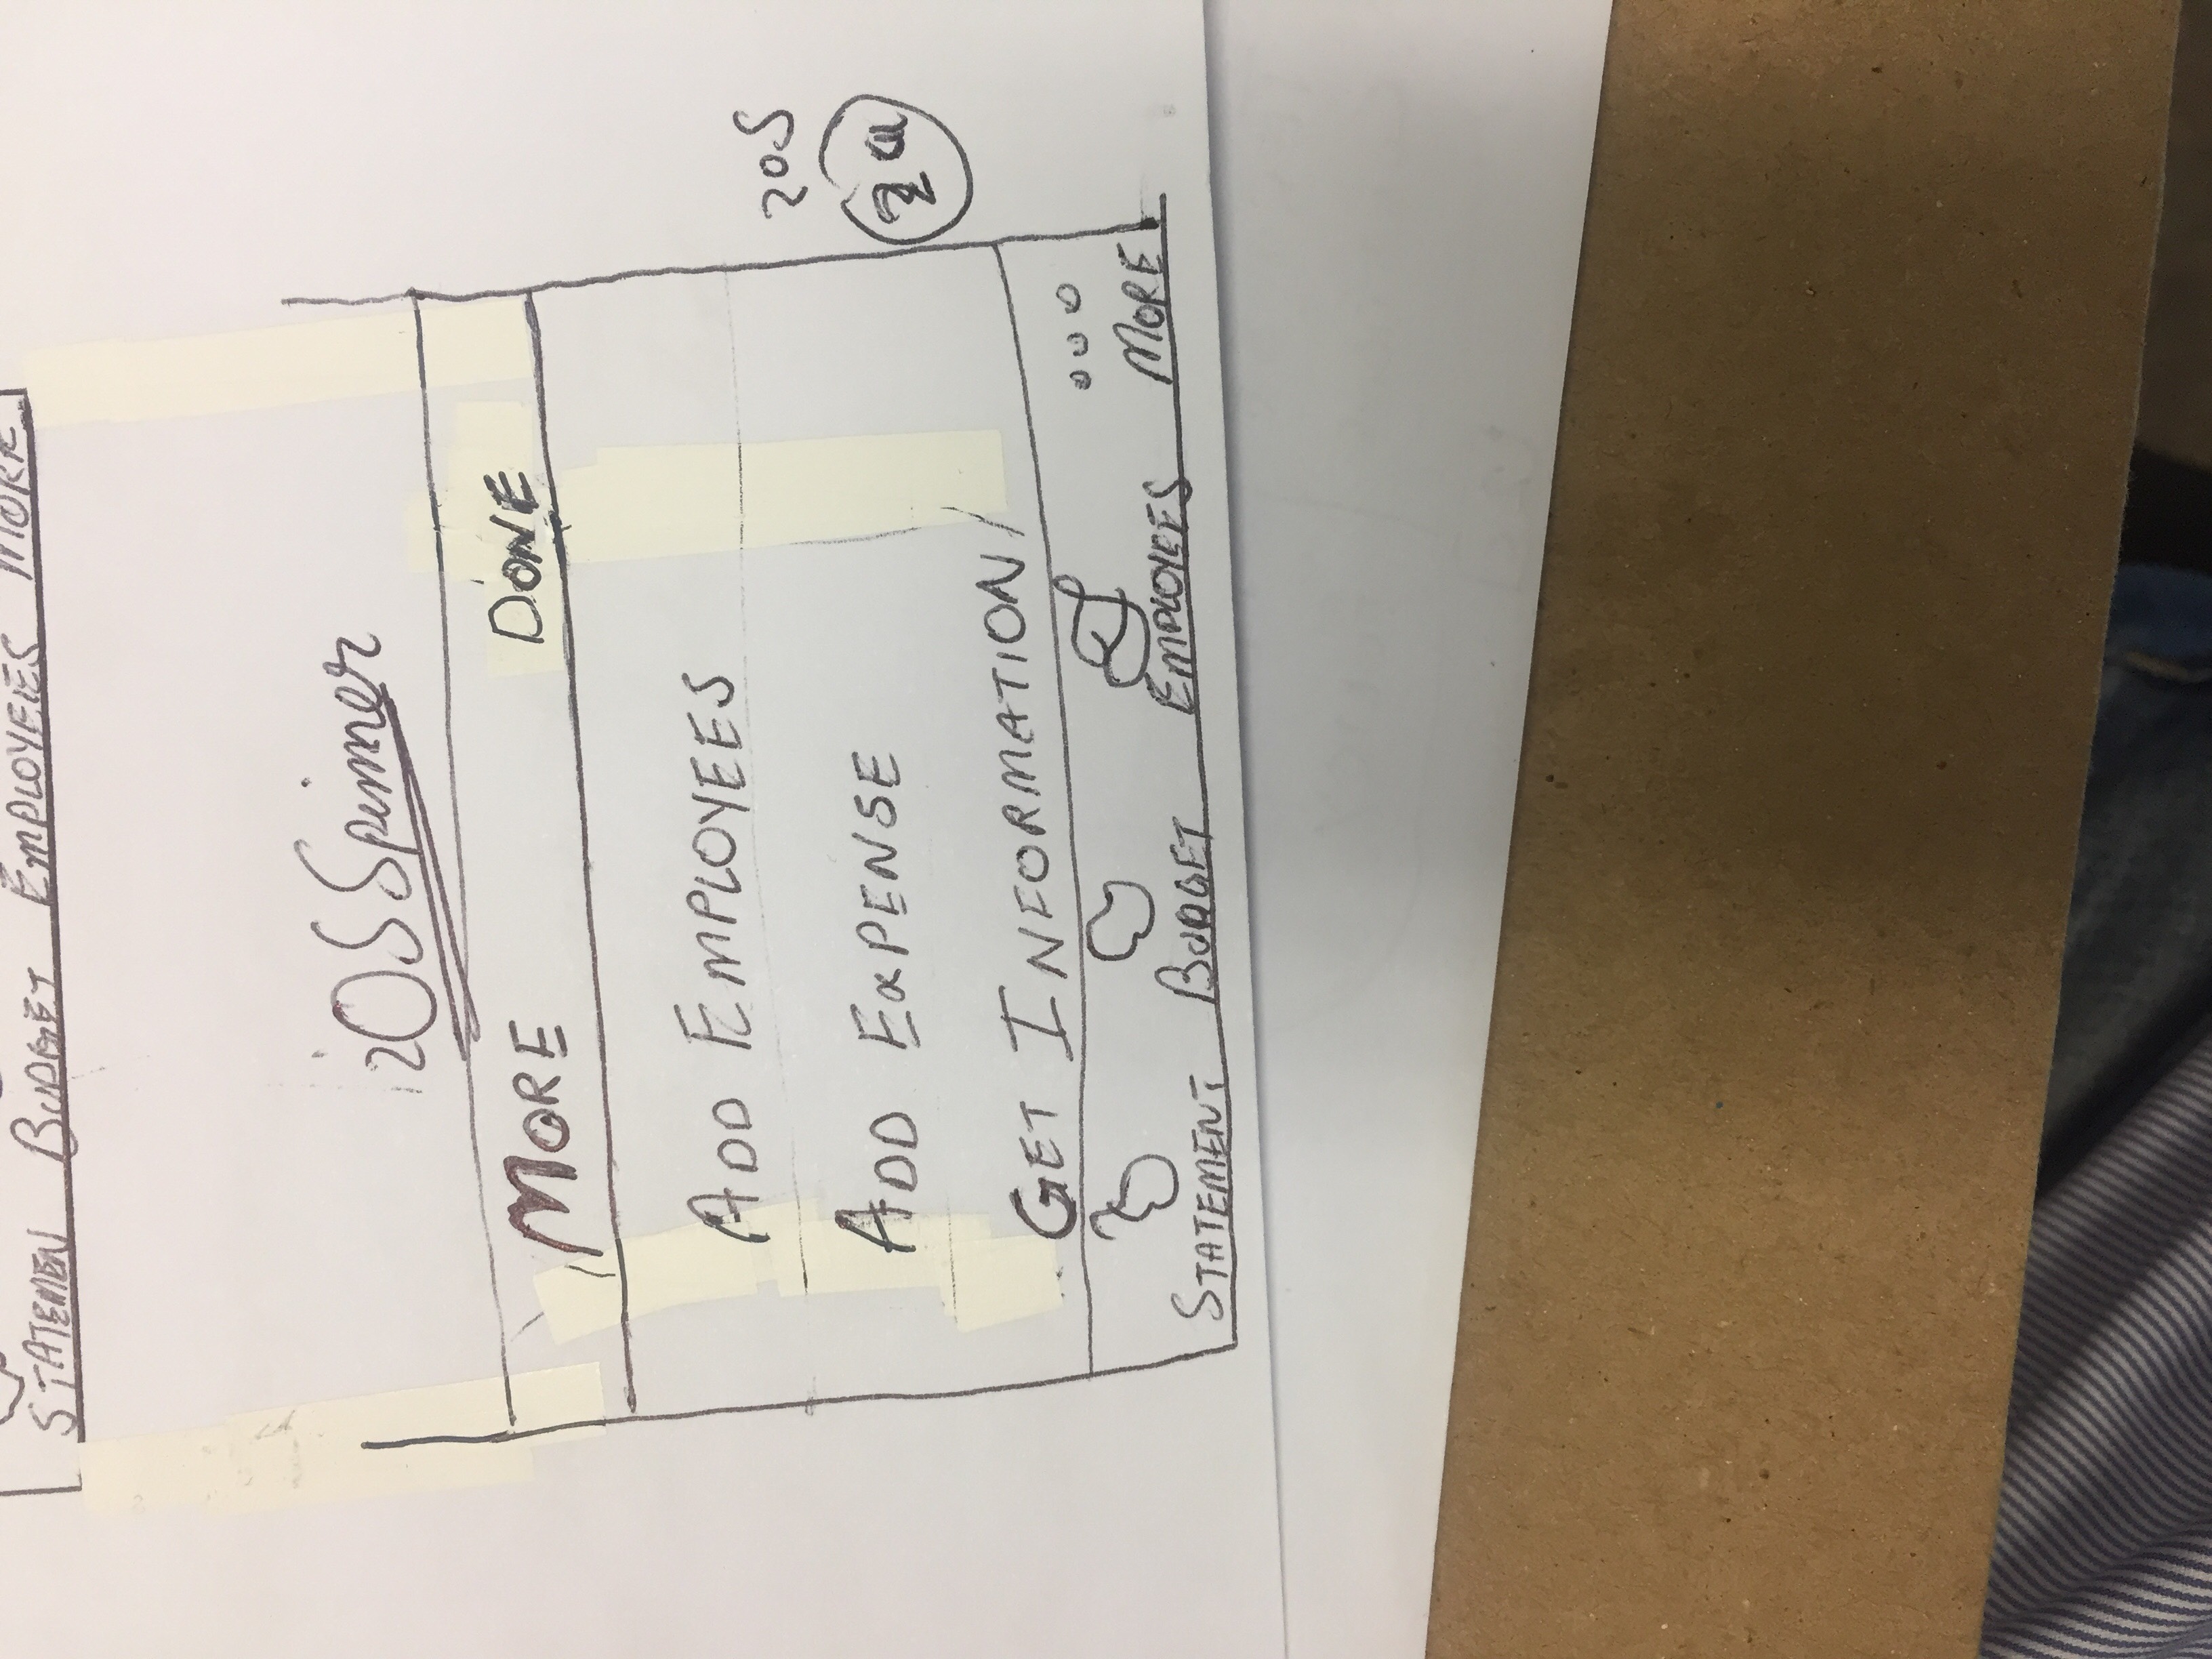 STATEMEN BUDGET EMPLOYEES MORE
iOS Spinner
MORE DONE
ADD EMPLOYEES
ADD EXPENSE
GET INFORMATION
iOS
STATEMENT BUDGET EMPLOYEES MORE